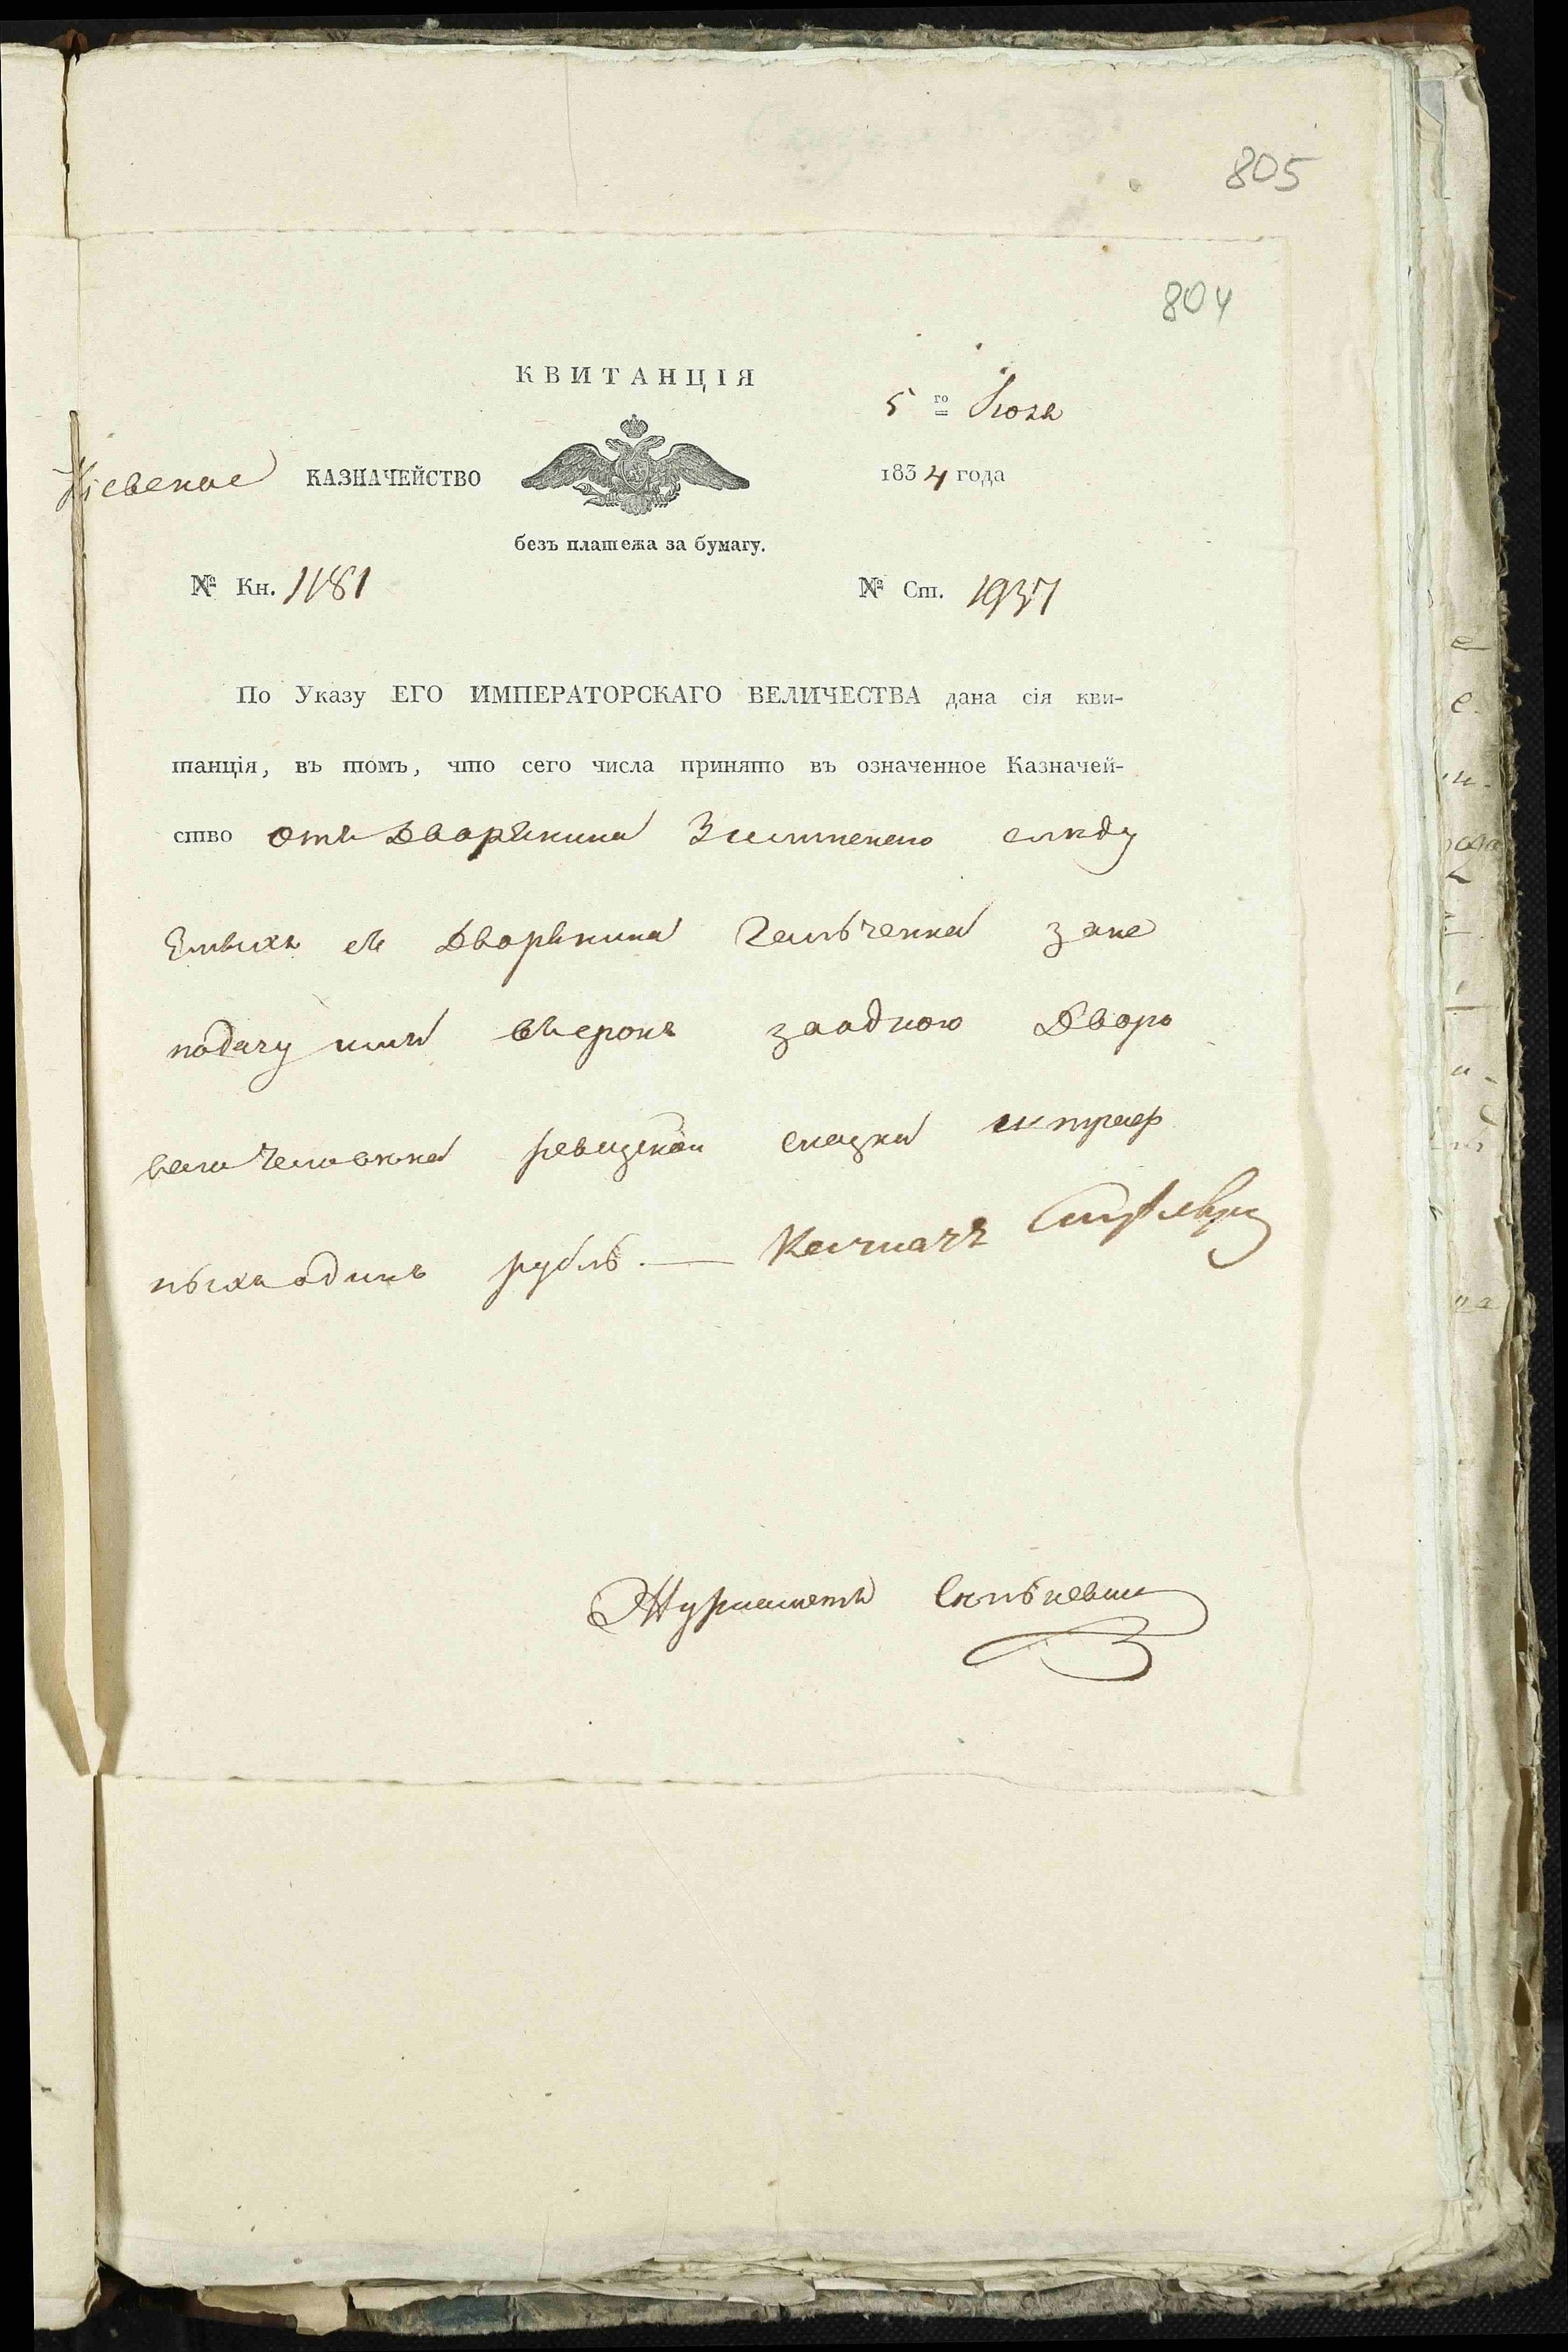 805
804
КВИТАНЦІЯ
5 го Іюля
Кіевское КАЗНАЧЕЙСТВО
1834 года
безъ платежа за бумагу.
№ Кн. 1181
№ Ст. 1937
По Указу ЕГО ИМПЕРАТОРСКАГО ВЕЛИЧЕСТВА дана сія кви-
танція, въ томъ, что сего числа принято въ означенное Казначей-
ство отъ Дворянина следу
емыхъ съ Дворянина зане
подачу имъ въсрокъ заодного Дворо
ваго человѣка ревизской сказки штраф
ныхъ одинъ рубль. — Казнач